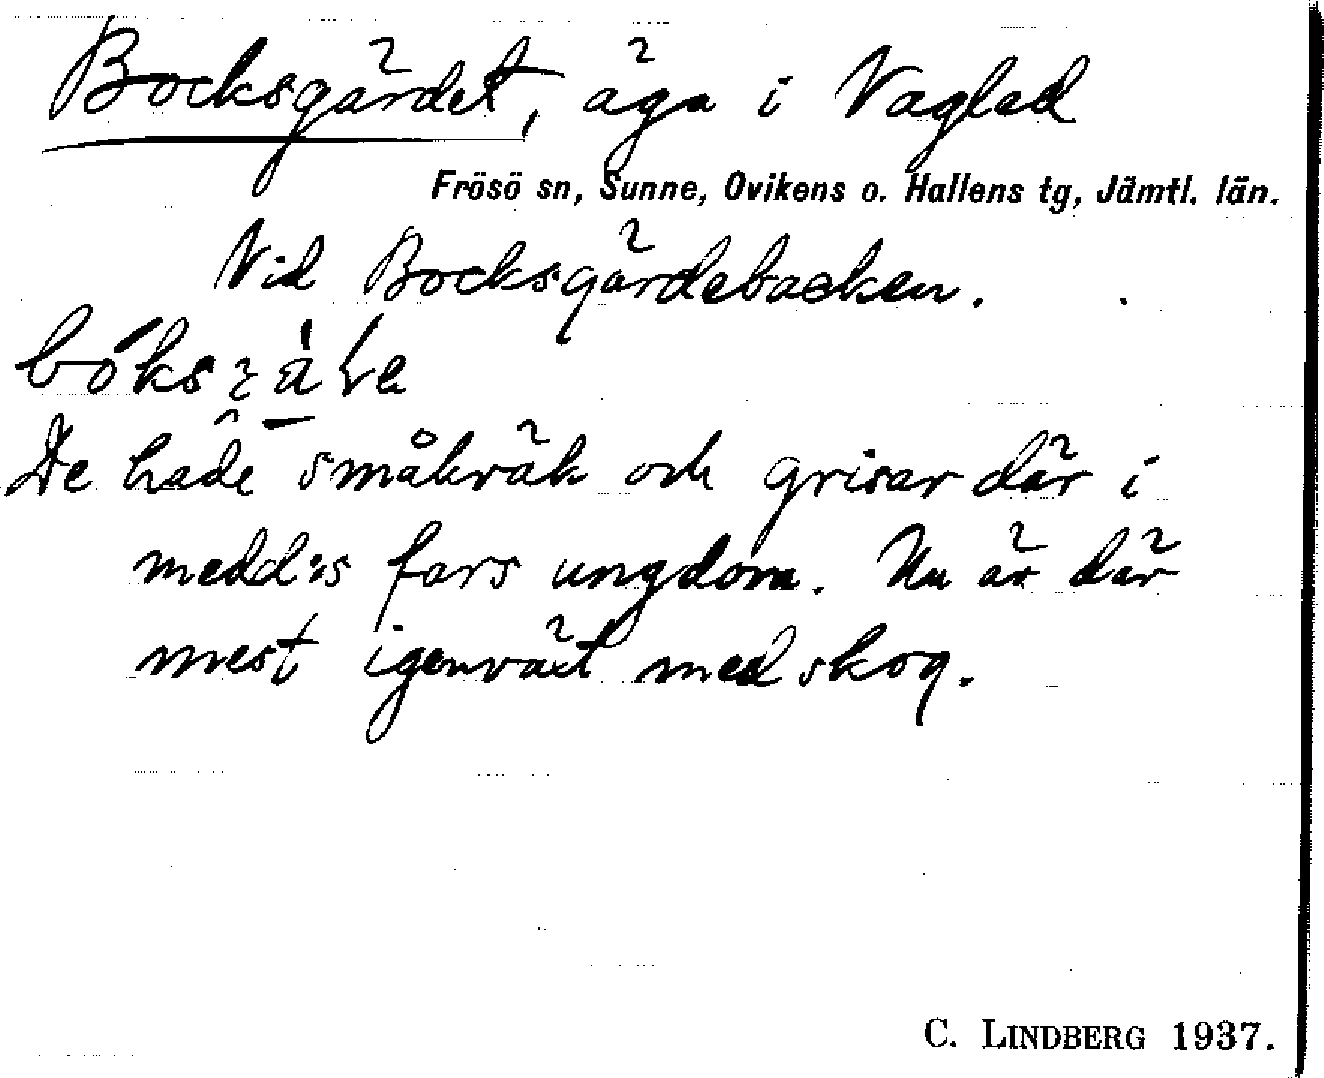 Bocksgärdet, äga i Vagled
Frösö sn, Sunne, Ovikens o. Hallens tg, Jämtl. län.
Vid Bocksgärdebacken.
De hade småkräk och grisar där i
medd:s fars ungdom. Nu är där
mest igenväxt med skog.
C. LINDBERG 1937.